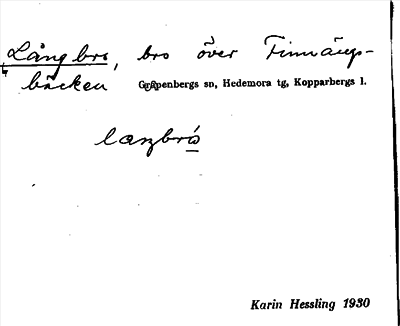 Långbro, bro över Finnängs-
bäcken Garpenbergs sn, Hedemora tg, Kopparbergs l.
Karin Hessling 1930